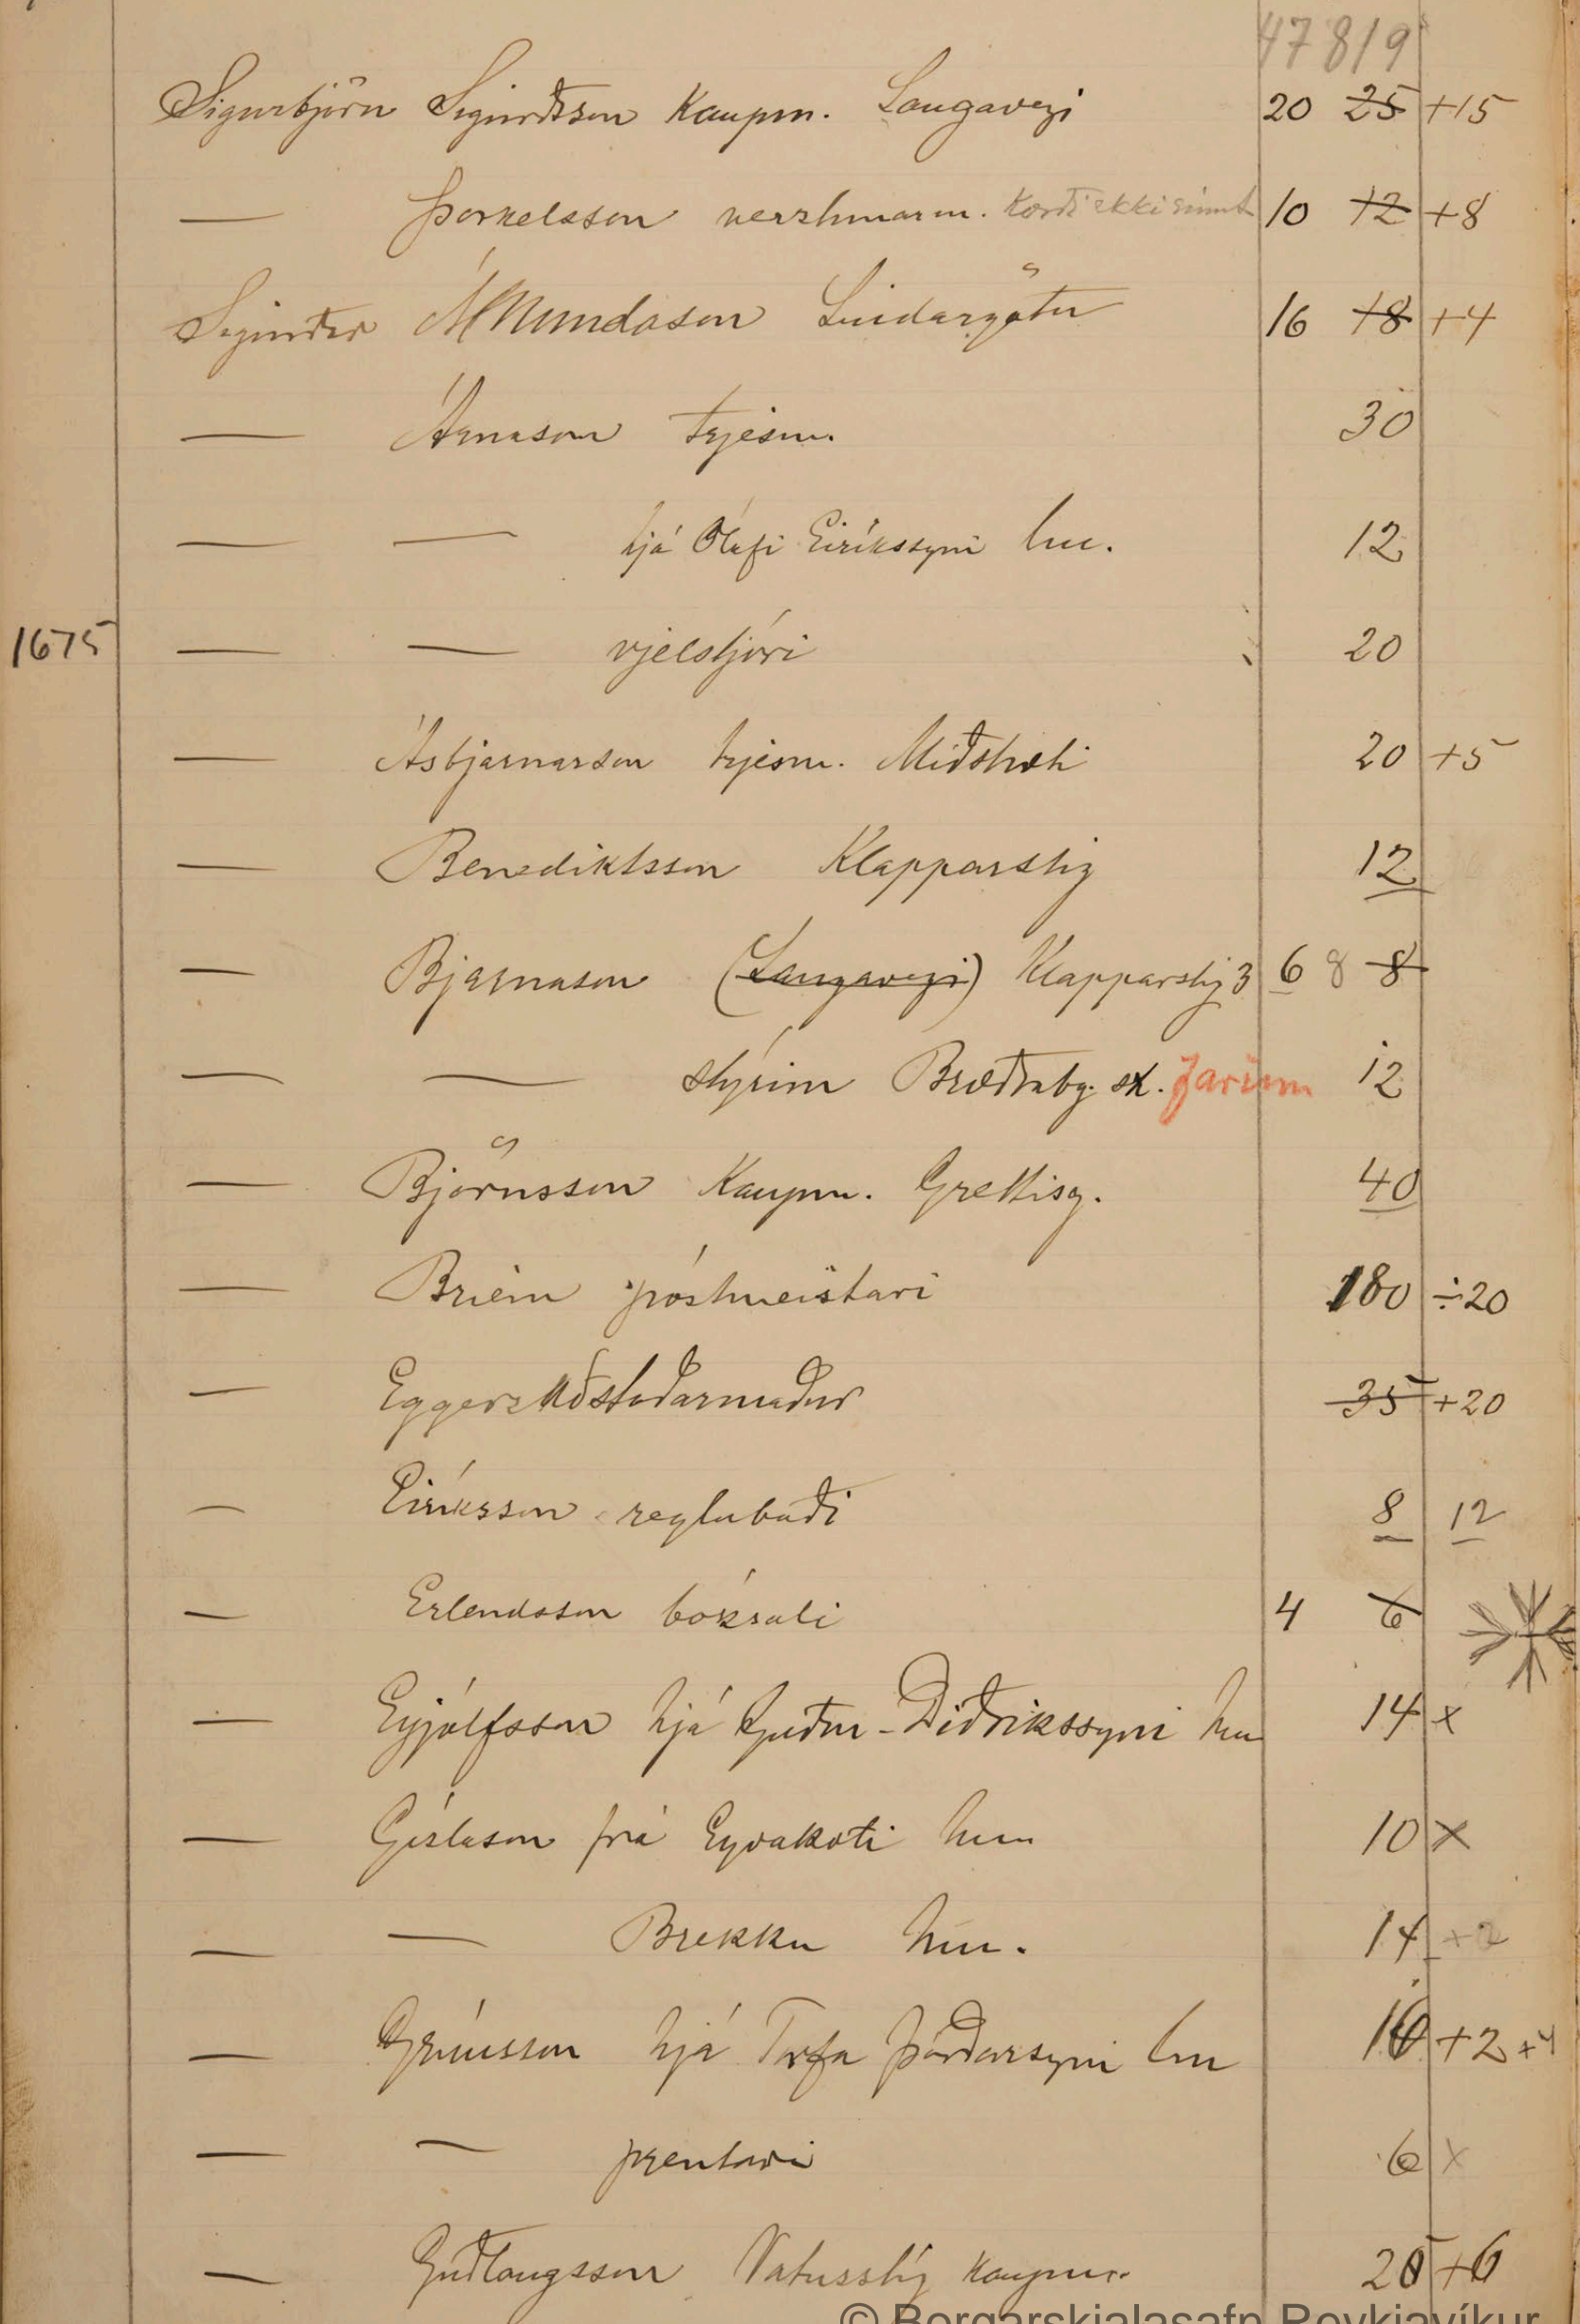 47819
Sigurbjörn Sigurðsson Kaupm. Laugavegi 20 25 +15
— Þorkelsson verzlunarm. 10 12 +8
Sigurður Ámundason Lindargötu 16 18 +4
— Árnason trjesm. 30
— — hjá Ólafi Eiríkssyni hm. 12
1675 — — vjelstjóri 20
— Ásbjarnarson trjesm. Miðstræti 20 +5
— Benediktsson Klapparstíg 12
— Bjarnason (Laugavegi) Klapparstíg 3 6 8 8
— — stýrim Bræðrabg. st. farinn 12
— Björnsson Kaupm. Grettisg. 40
— Briem póstmeistari 180 ÷20
— Eggerz aðstoðarmaður 35 +20
— Eiríksson regluboði 8 12
— Erlendsson bóksali 4 6
— Eyjólfsson hjá Guðm. Diðrikssyni hm 14 x
— Gíslason frá Eyvakoti hm 10 x
— — Brekku hm. 14 +2
— Grímsson hjá Torfa Þórðarsyni hm 10 +2 +4
— — prentari 6 x
— Guðlaugsson Vatnsstíg Kaupm. 20 +6
© Borgarskjalasafn Reykjavíkur